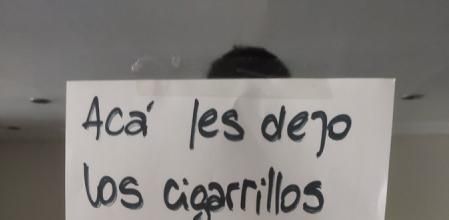 Acá les dejo
los cigarrillos